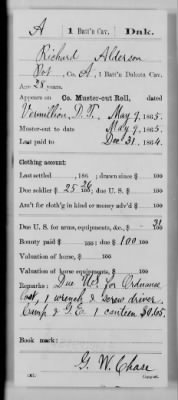 A | 1 Batt'n Cav. | Dak.
Richard Alderson
Pvt, Co. A, 1 Batt'n Dakota Cav.
Age 28 years.
Appears on Co. Muster-out Roll, dated
Vermillion, D.T., May 9, 1865.
Muster-out to date May 9, 1865.
Last paid to Dec 31, 1864.
Clothing account:
Last settled , 186 ; drawn since $ 100
Due soldier $ 25 26/100; due U. S. $ 100
Am't for cloth'g in kind or money adv'd $ 100
Due U. S. for arms, equipments, &c., $ 31/100
Bounty paid $ 100; due $ 100 100
Valuation of horse, $ 100
Valuation of horse equipments, $ 100
Remarks: Due U.S. for Ordnance
lost, 1 wrench & screw driver
Camp & G.E. 1 canteen $0.65.
Book mark:
G. W. Chase
Copyist.